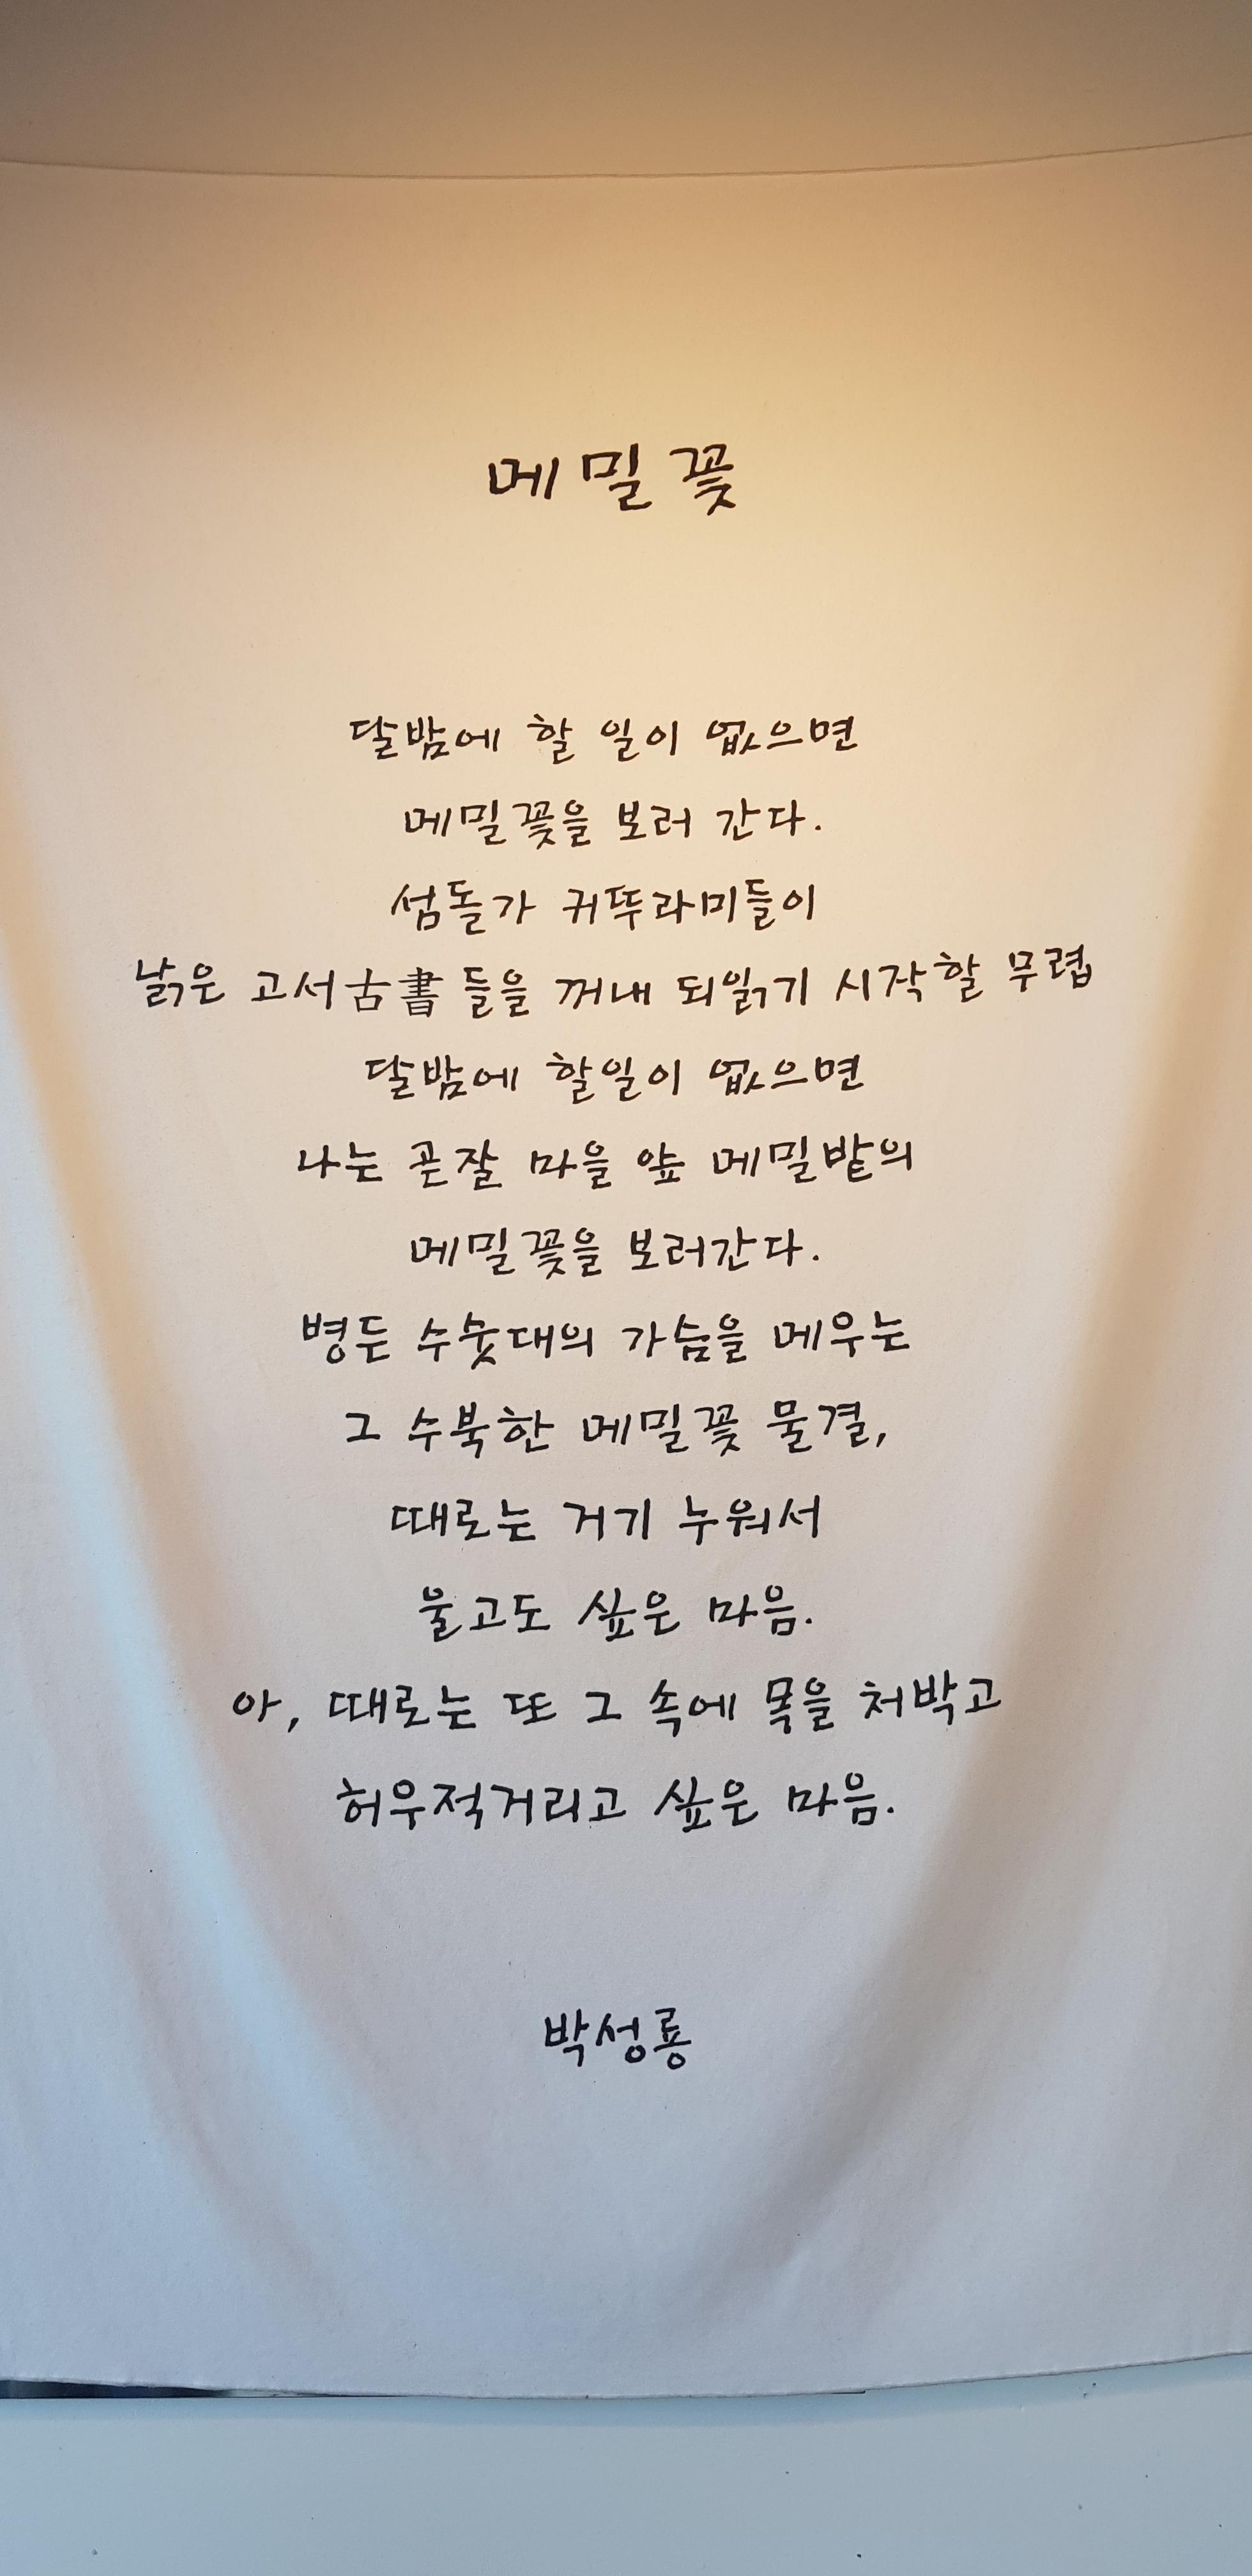 메밀꽃
달밤에 할 일이 없으면
메밀꽃을 보러 간다.
섬돌가 귀뚜라미들이
낡은 고서古書들을 꺼내 되읽기 시작할 무렵
달밤에 할일이 없으면
나는 곧잘 마을 앞 메밀밭의
메밀꽃을 보러간다.
병든 수숫대의 가슴을 메우는
그 수북한 메밀꽃 물결,
때로는 거기 누워서
울고도 싶은 마음.
아, 때로는 또 그 속에 목을 처박고
허우적거리고 싶은 마음.
박성룡